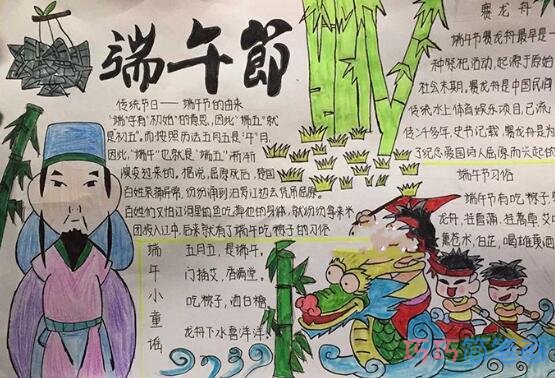 端午節
传统节日——端午节的由来
"端"字有"初始"的意思,因此"端五"就
是初五"。而按照历法五月正是"午"月,
因此,"端午"也就是"端五"渐渐
演变过来的。据说,屈原死后,楚国
百姓哀痛异常,纷纷涌到汨罗江边去凭吊屈原。
百姓们又怕江河里的鱼吃掉他的身体,就纷纷拿来米
团投入江中,后来就有了端午吃粽子的习俗
端午小童谣
五月五,是端午。
门插艾,香满堂,
吃粽子,洒白糖,
龙舟下水喜洋洋。
赛龙舟
端午节赛龙舟最早是一
种祭祀活动,起源于原始
社会末期,赛龙舟是中国民间
传统水上体育娱乐项目,已流
传2千多年,史书记载,赛龙舟是为
了纪念爱国诗人屈原而兴起的
端午节习俗
端午节有吃粽子,赛
龙舟,挂菖蒲,挂蒿草,艾叶
薰苍术,白芷,喝雄黄酒